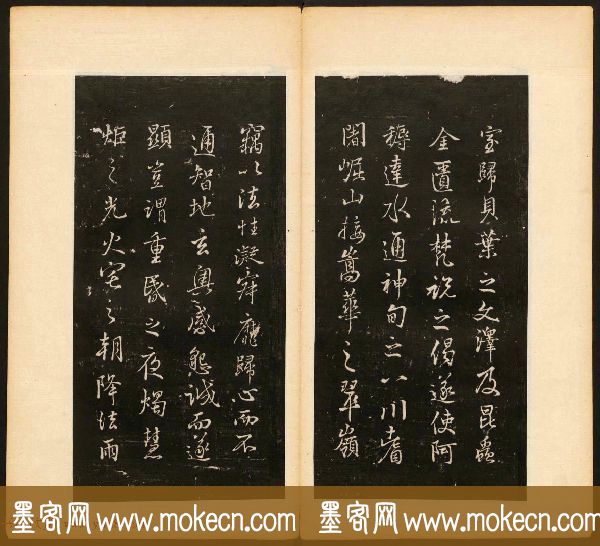 室歸貝葉之文澤及昆蟲
金匱流梵說之偈遂使阿
耨達水通神甸之八川耆
闍崛山接嵩華之翠嶺
竊以法性凝寂靡歸心而不
通智地玄奧感懇誠而遂
顯豈謂重昏之夜燭慧
炬之光火宅之朝降法雨
墨客网 www.mokecn.com
墨客网 www.mokecn.com